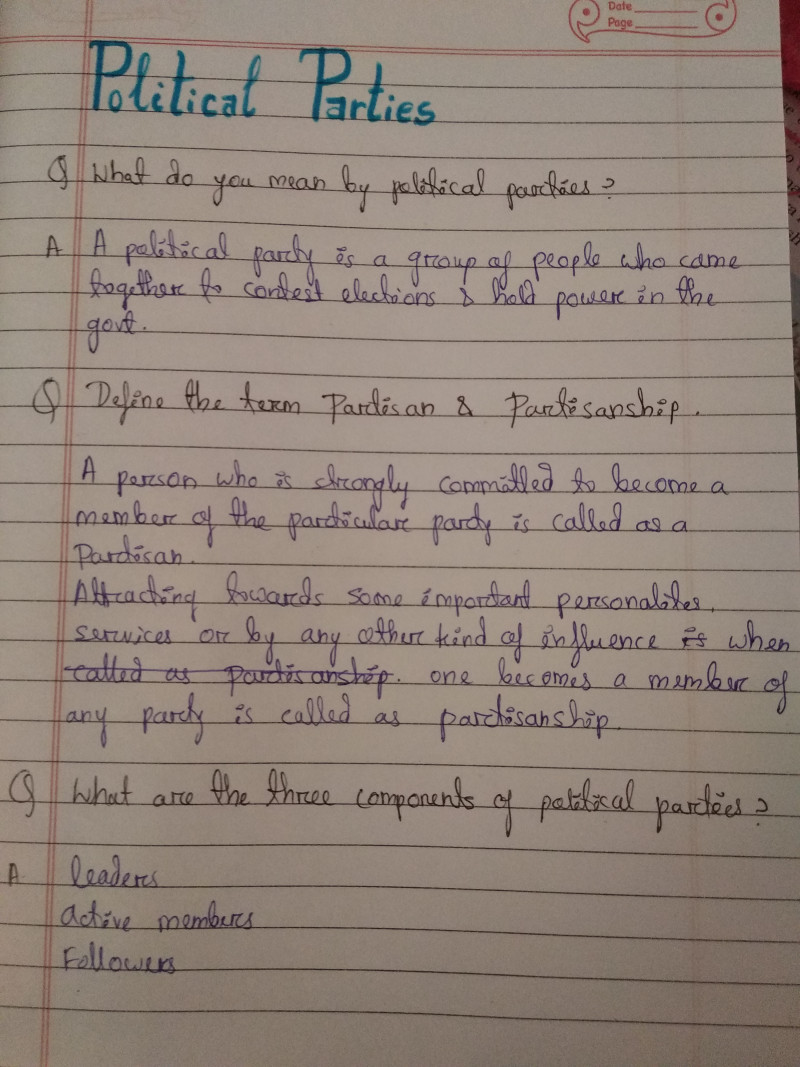 Date
Page
Political Parties
Q What do you mean by political parties?
A A political party is a group of people who came
together to contest elections & hold power in the
govt.
Q Define the term Partisan & Partisanship.
A person who is strongly committed to become a
member of the particular party is called as a
Partisan.
Attracting towards some important personalites,
services or by any other kind of influence is when
called as partisanship. one becomes a member of
any party is called as partisanship
Q What are the three components of political parties?
A leaders
active members
Followers